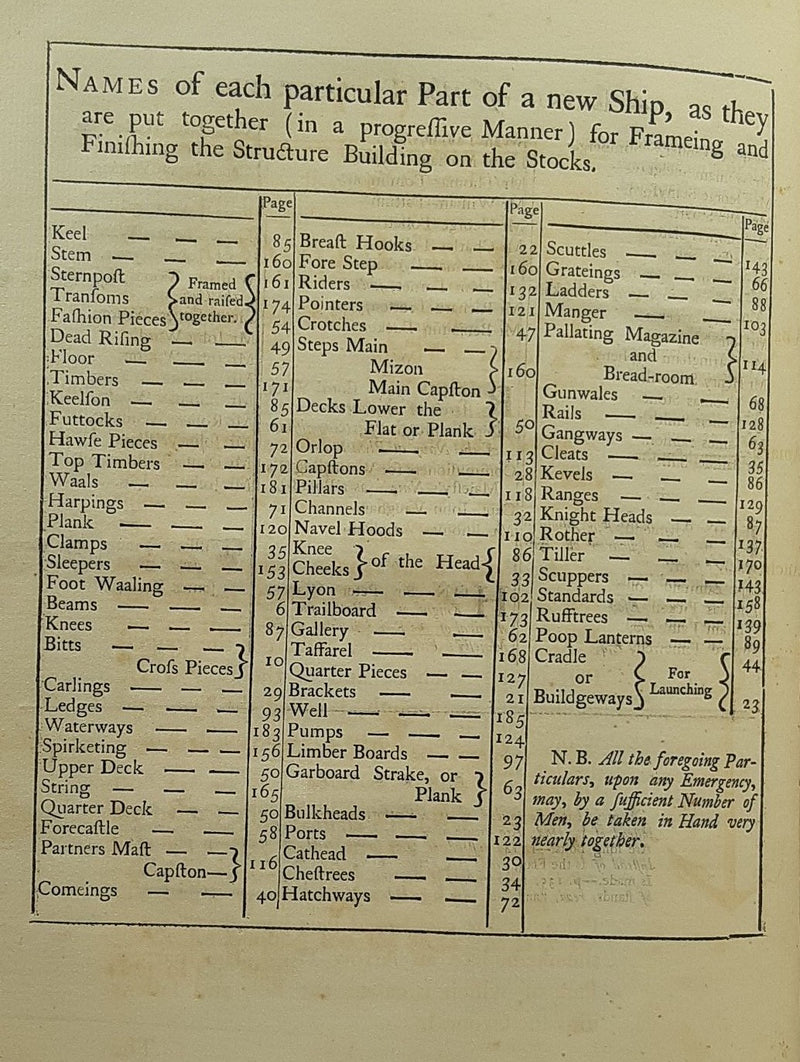 NAMES of each particular Part of a new Ship, as they
are put together (in a progreſſive Manner) for Frameing and
Finiſhing the Structure Building on the Stocks.
Page
Keel — — — 85
Stem — — — 160
Sternpoſt } Framed { 161
Tranſoms } and raiſed { 174
Faſhion Pieces } together. { 54
Dead Riſing — — 49
Floor — — — 57
Timbers — — — 171
Keelſon — — — 85
Futtocks — — — 61
Hawſe Pieces — — 72
Top Timbers — — 172
Waals — — — 181
Harpings — — — 71
Plank — — — 120
Clamps — — — 35
Sleepers — — — 153
Foot Waaling — — 57
Beams — — — 6
Knees — — — 87
Bitts — — — }
Croſs Pieces } 10
Carlings — — — 29
Ledges — — — 93
Waterways — — 183
Spirketing — — — 156
Upper Deck — — 50
String — — — 165
Quarter Deck — — 50
Forecaſtle — — 58
Partners Maſt — — }
Capſton— } 116
Comeings — — 40
Page
Breaſt Hooks — — 22
Fore Step — — 160
Riders — — — 132
Pointers — — — 121
Crotches — — 47
Steps Main — — }
Mizon } 160
Main Capſton }
Decks Lower the }
Flat or Plank } 50
Orlop — — 113
Capſtons — — 28
Pillars — — — 118
Channels — — 32
Navel Hoods — — 110
Knee } of the Head { 86
Cheeks } { 33
Lyon — — — 102
Trailboard — — 173
Gallery — — 62
Taffarel — — 168
Quarter Pieces — — 127
Brackets — — 21
Well — — — 185
Pumps — — — 124
Limber Boards — — 97
Garboard Strake, or }
Plank } 63
Bulkheads — — 23
Ports — — — 122
Cathead — — 30
Cheſtrees — — 34
Hatchways — — 72
Page
Scuttles — — — 143
Grateings — — — 66
Ladders — — — 88
Manger — — 103
Pallating Magazine }
and } 114
Bread-room }
Gunwales — — 68
Rails — — — 128
Gangways — — — 63
Cleats — — — 35
Kevels — — — 86
Ranges — — — 129
Knight Heads — — 87
Rother — — — 137
Tiller — — — 170
Scuppers — — — 143
Standards — — — 158
Rufftrees — — — 139
Poop Lanterns — — 89
Cradle } { 44
or } For {
Buildgeways } Launching { 23
N. B. All the foregoing Par-
ticulars, upon any Emergency,
may, by a ſufficient Number of
Men, be taken in Hand very
nearly together.